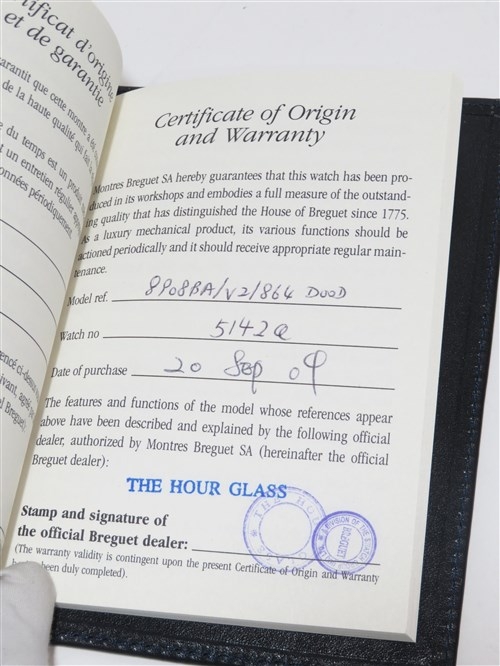 rtificat d'origine
et de garantie
arantit que cette montre a été
de la haute qualité qui fait
du temps est un produit
et un entretien régulier
données périodiquement
Certificate of Origin
and Warranty
Montres Breguet SA hereby guarantees that this watch has been pro-
duced in its workshops and embodies a full measure of the outstand-
ing quality that has distinguished the House of Breguet since 1775.
As a luxury mechanical product, its various functions should be
actioned periodically and it should receive appropriate regular main-
tenance.
Model ref. 8908BA/V2/864 D00D
Watch no 5142Q
Date of purchase 20 Sep 09
The features and functions of the model whose references appear
above have been described and explained by the following official
dealer, authorized by Montres Breguet SA (hereinafter the official
Breguet dealer):
THE HOUR GLASS
Stamp and signature of
the official Breguet dealer:
(The warranty validity is contingent upon the present Certificate of Origin and Warranty
been duly completed).